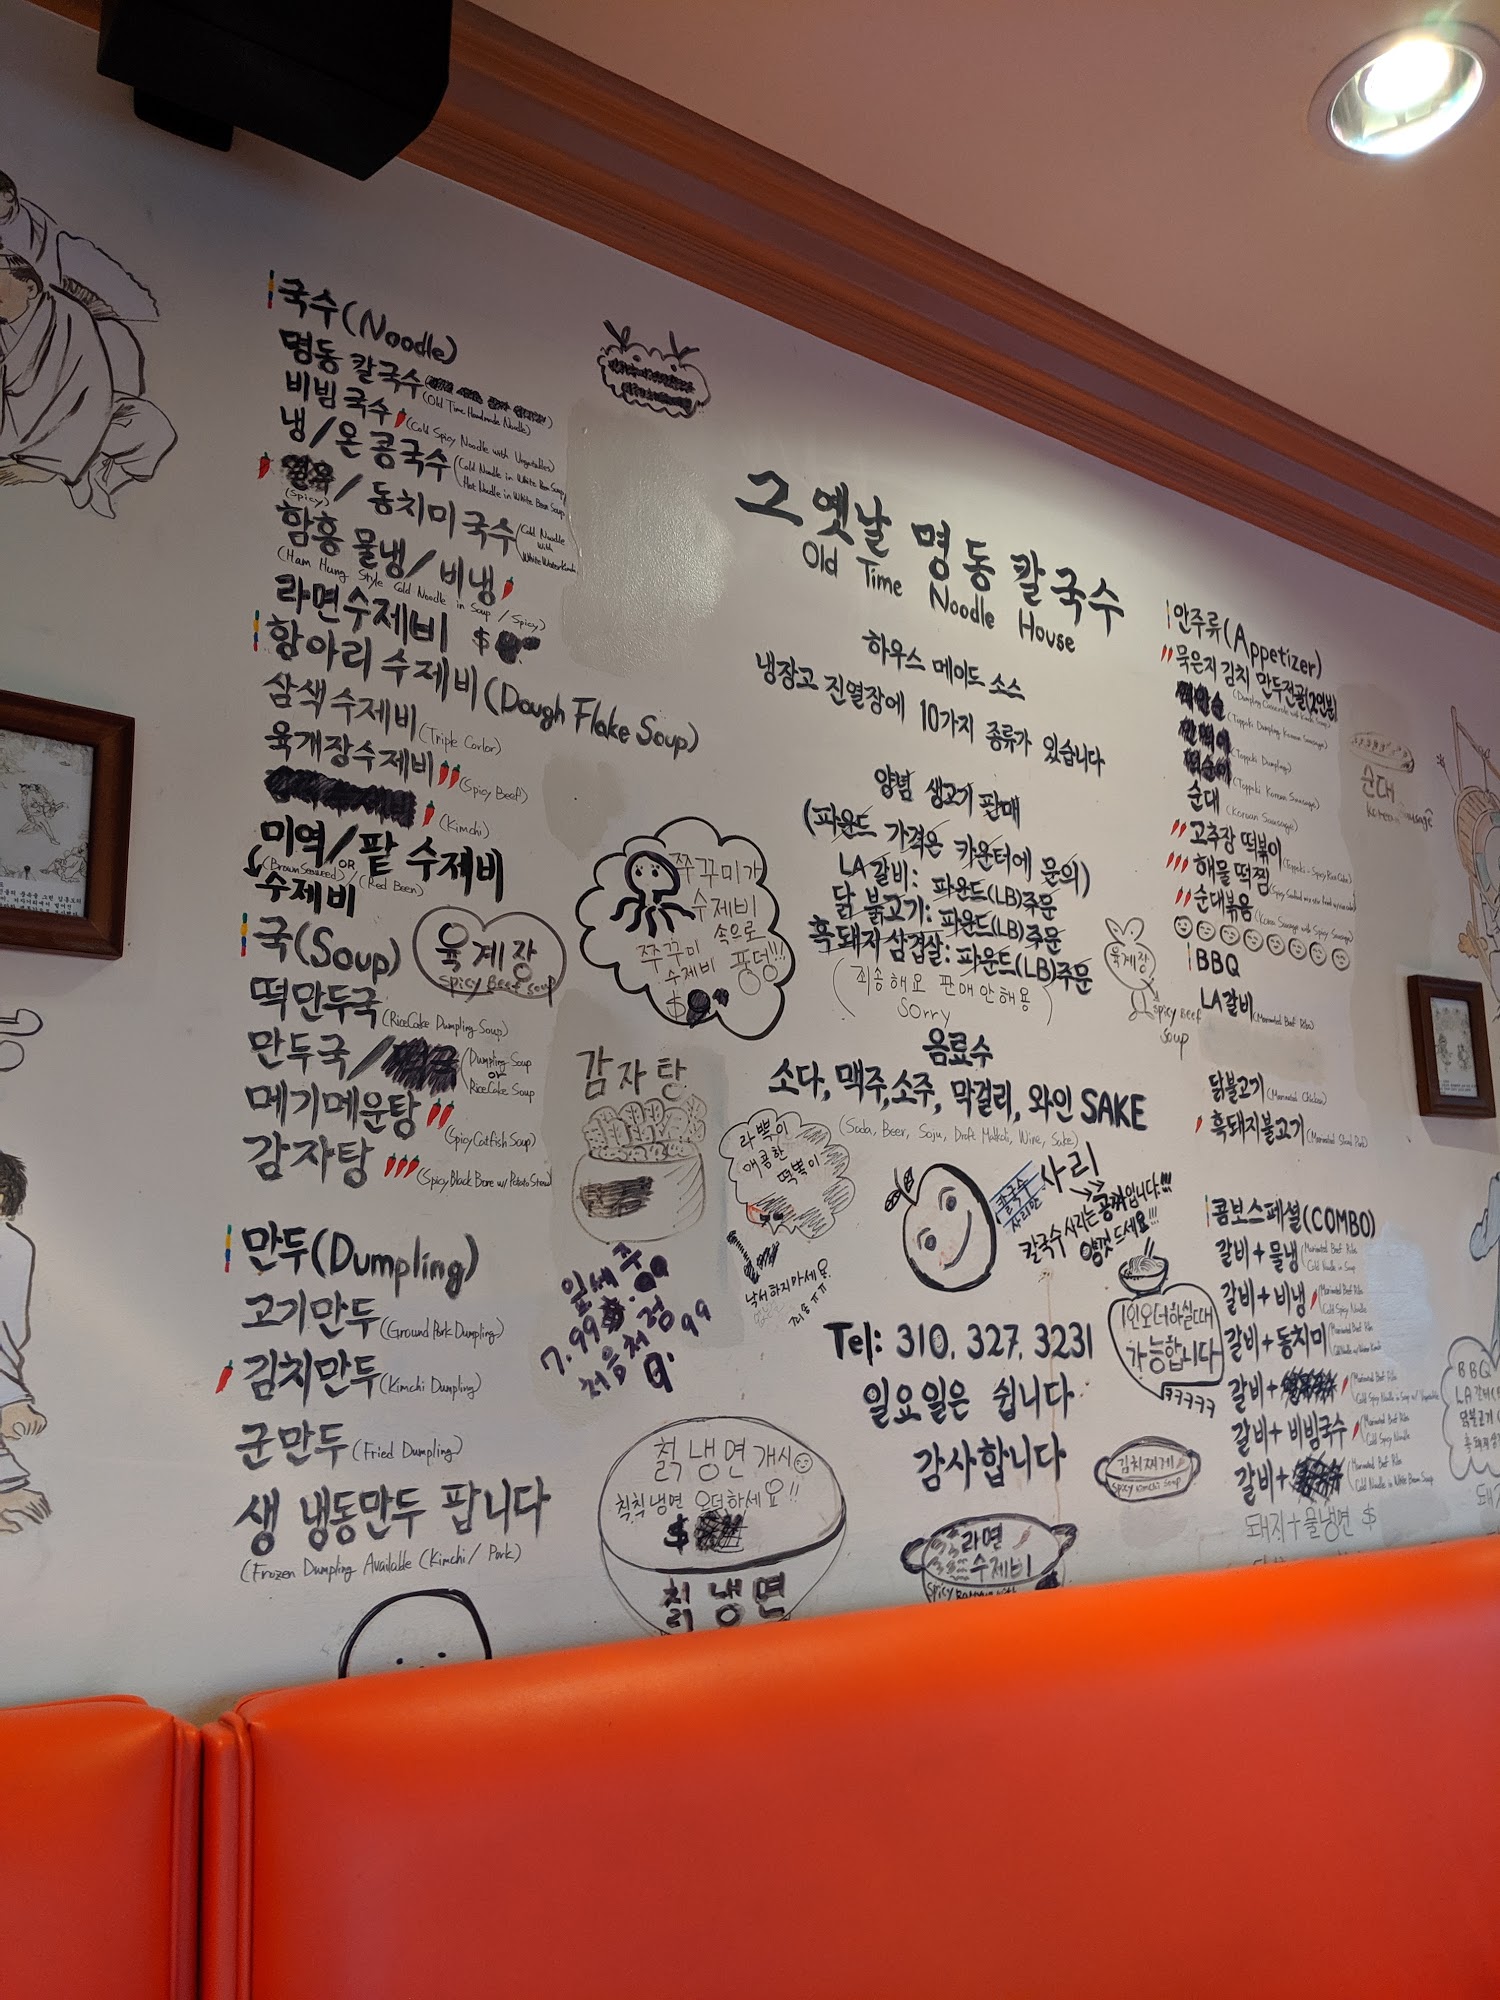 국수(Noodle)
명동 칼국수
(Old Time Handmade Noodle)
비빔국수(Cold Spicy Noodle with Vegetables)
냉/온 콩국수(Cold Noodle in White Bean Soup
Hot Noodle in White Bean Soup
(Spicy)
/ 동치미국수(Cold Noodle with White Water Kimchi
함흥 물냉/비냉
(Ham Hung Style Cold Noodle in Soup / Spicy)
라면수제비 $
항아리 수제비(Dough Flake Soup)
삼색수제비(Triple Corlor)
육개장수제비(Spicy Beef)
(Kimchi)
미역/팥 수제비
(Brown Seaweed) OR (Red Been)
수제비
국(Soup)
떡만두국(RiceCake Dumpling Soup)
만두국/(Dumpling Soup
OR
RiceCake Soup
메기매운탕(Spicy Catfish Soup)
감자탕(Spicy Black Bone w/ Potato Stew)
만두(Dumpling)
고기만두(Ground Pork Dumpling)
김치만두(Kimchi Dumpling)
군만두(Fried Dumpling)
생 냉동만두 팝니다
(Frozen Dumpling Available (Kimchi/ Pork)
육계장
spicy Beef soup
쭈꾸미가
수제비
속으로
풍덩!!!
쭈꾸미
수제비
$
감자탕
잎새주
7.99
처음처럼
9.99
칡냉면개시
칙칙냉면 오더하세요!!
$
칡냉면
그옛날 명동 칼국수
Old Time Noodle House
하우스 메이드 소스
냉장고 진열장에 10가지 종류가 있습니다
양념 생고기 판매
(파운드 가격은 카운터에 문의)
LA갈비: 파운드(LB)주문
닭 불고기: 파운드(LB)주문
흑돼지삼겹살: 파운드(LB)주문
(죄송해요 판매안해용)
Sorry
음료수
소다, 맥주,소주, 막걸리, 와인 SAKE
(Soda, Beer, Soju, Draft Makkoli, Wine, Sake)
라뽁이
매콤한
떡볶이
낙서하지마세요
칼국수
사리만
사리
칼국수사리는 공짜입니다!!!
양껏드세요!!!
1인오더하실때
가능합니다
ㅋㅋㅋㅋㅋ
Tel: 310. 327. 3231
일요일은 쉽니다
감사합니다
김치찌게
spicy kimchi soup
라면
수제비
안주류(Appetizer)
묵은지 김치 만두전골(2인분)
(Toppoki Dumpling Korean Sausage)
(Toppoki Dumpling)
(Toppoki Korean Sausage)
순대(Korean Sausage)
고추장 떡볶이(Toppoki - Spicy Rice Cake)
해물 떡찜
순대볶음(Korean Sausage with Spicy Sausage)
BBQ
LA갈비(Marinated Beef Ribs)
닭불고기(Marinated Chicken)
흑돼지불고기
순대
Korean Sausage
육계장
spicy Beef
soup
콤보스페셜(COMBO)
갈비+물냉(Marinated Beef Ribs
Cold Noodle in Soup
갈비+비냉(Marinated Beef Ribs
Cold Spicy Noodle
갈비+동치미(Marinated Beef Ribs
갈비+(Marinated Beef Ribs
Cold Spicy Noodle in Soup w/ Vegetables
갈비+비빔국수(Marinated Beef Ribs
Cold Spicy Noodle
갈비+(Marinated Beef Ribs
Cold Noodle in White Bean Soup
돼지+물냉면 $
BBQ
LA갈비
닭불고기